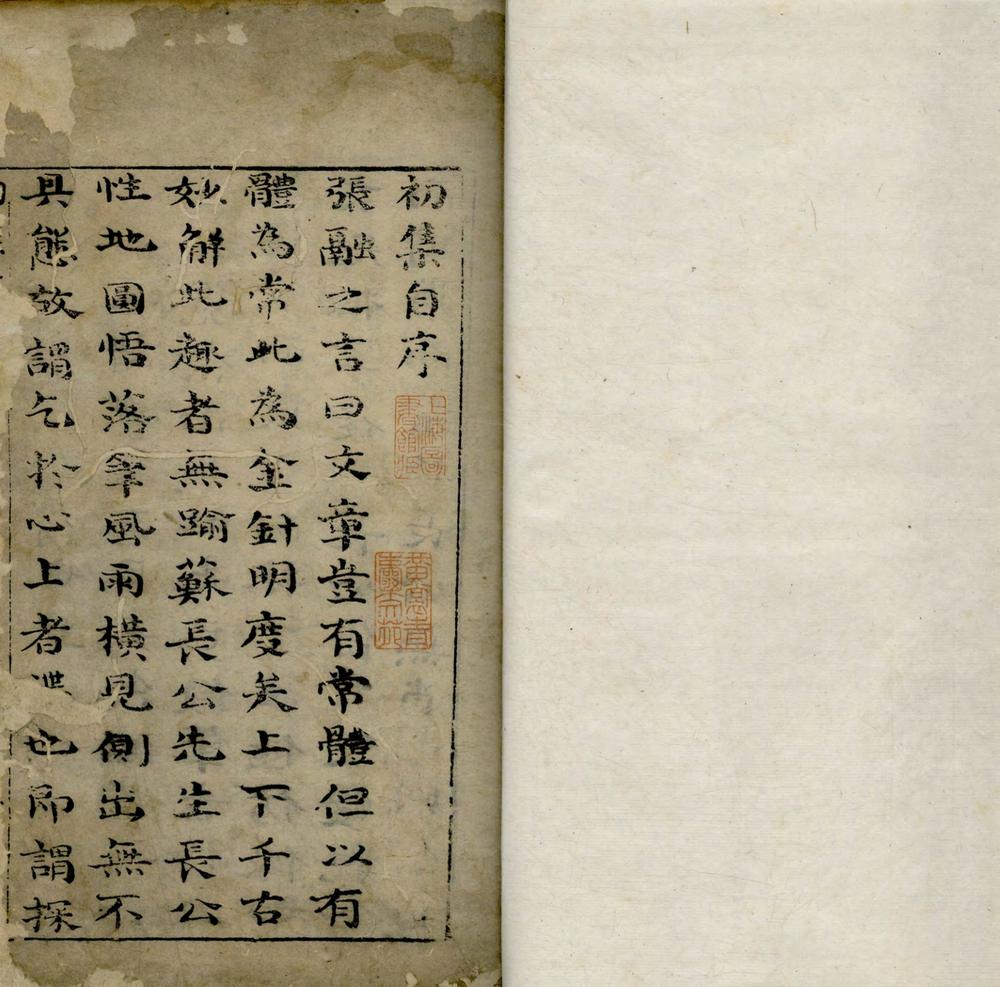 初集自序
張融之言曰文章豈有常體但以有
體為常此為金針明度矣上下千古
妙解此趣者無踰蘇長公先生長公
性地圓悟落筆風雨橫見側出無不
具態故謂乞於心上者 也即謂探
上海圖
書館藏